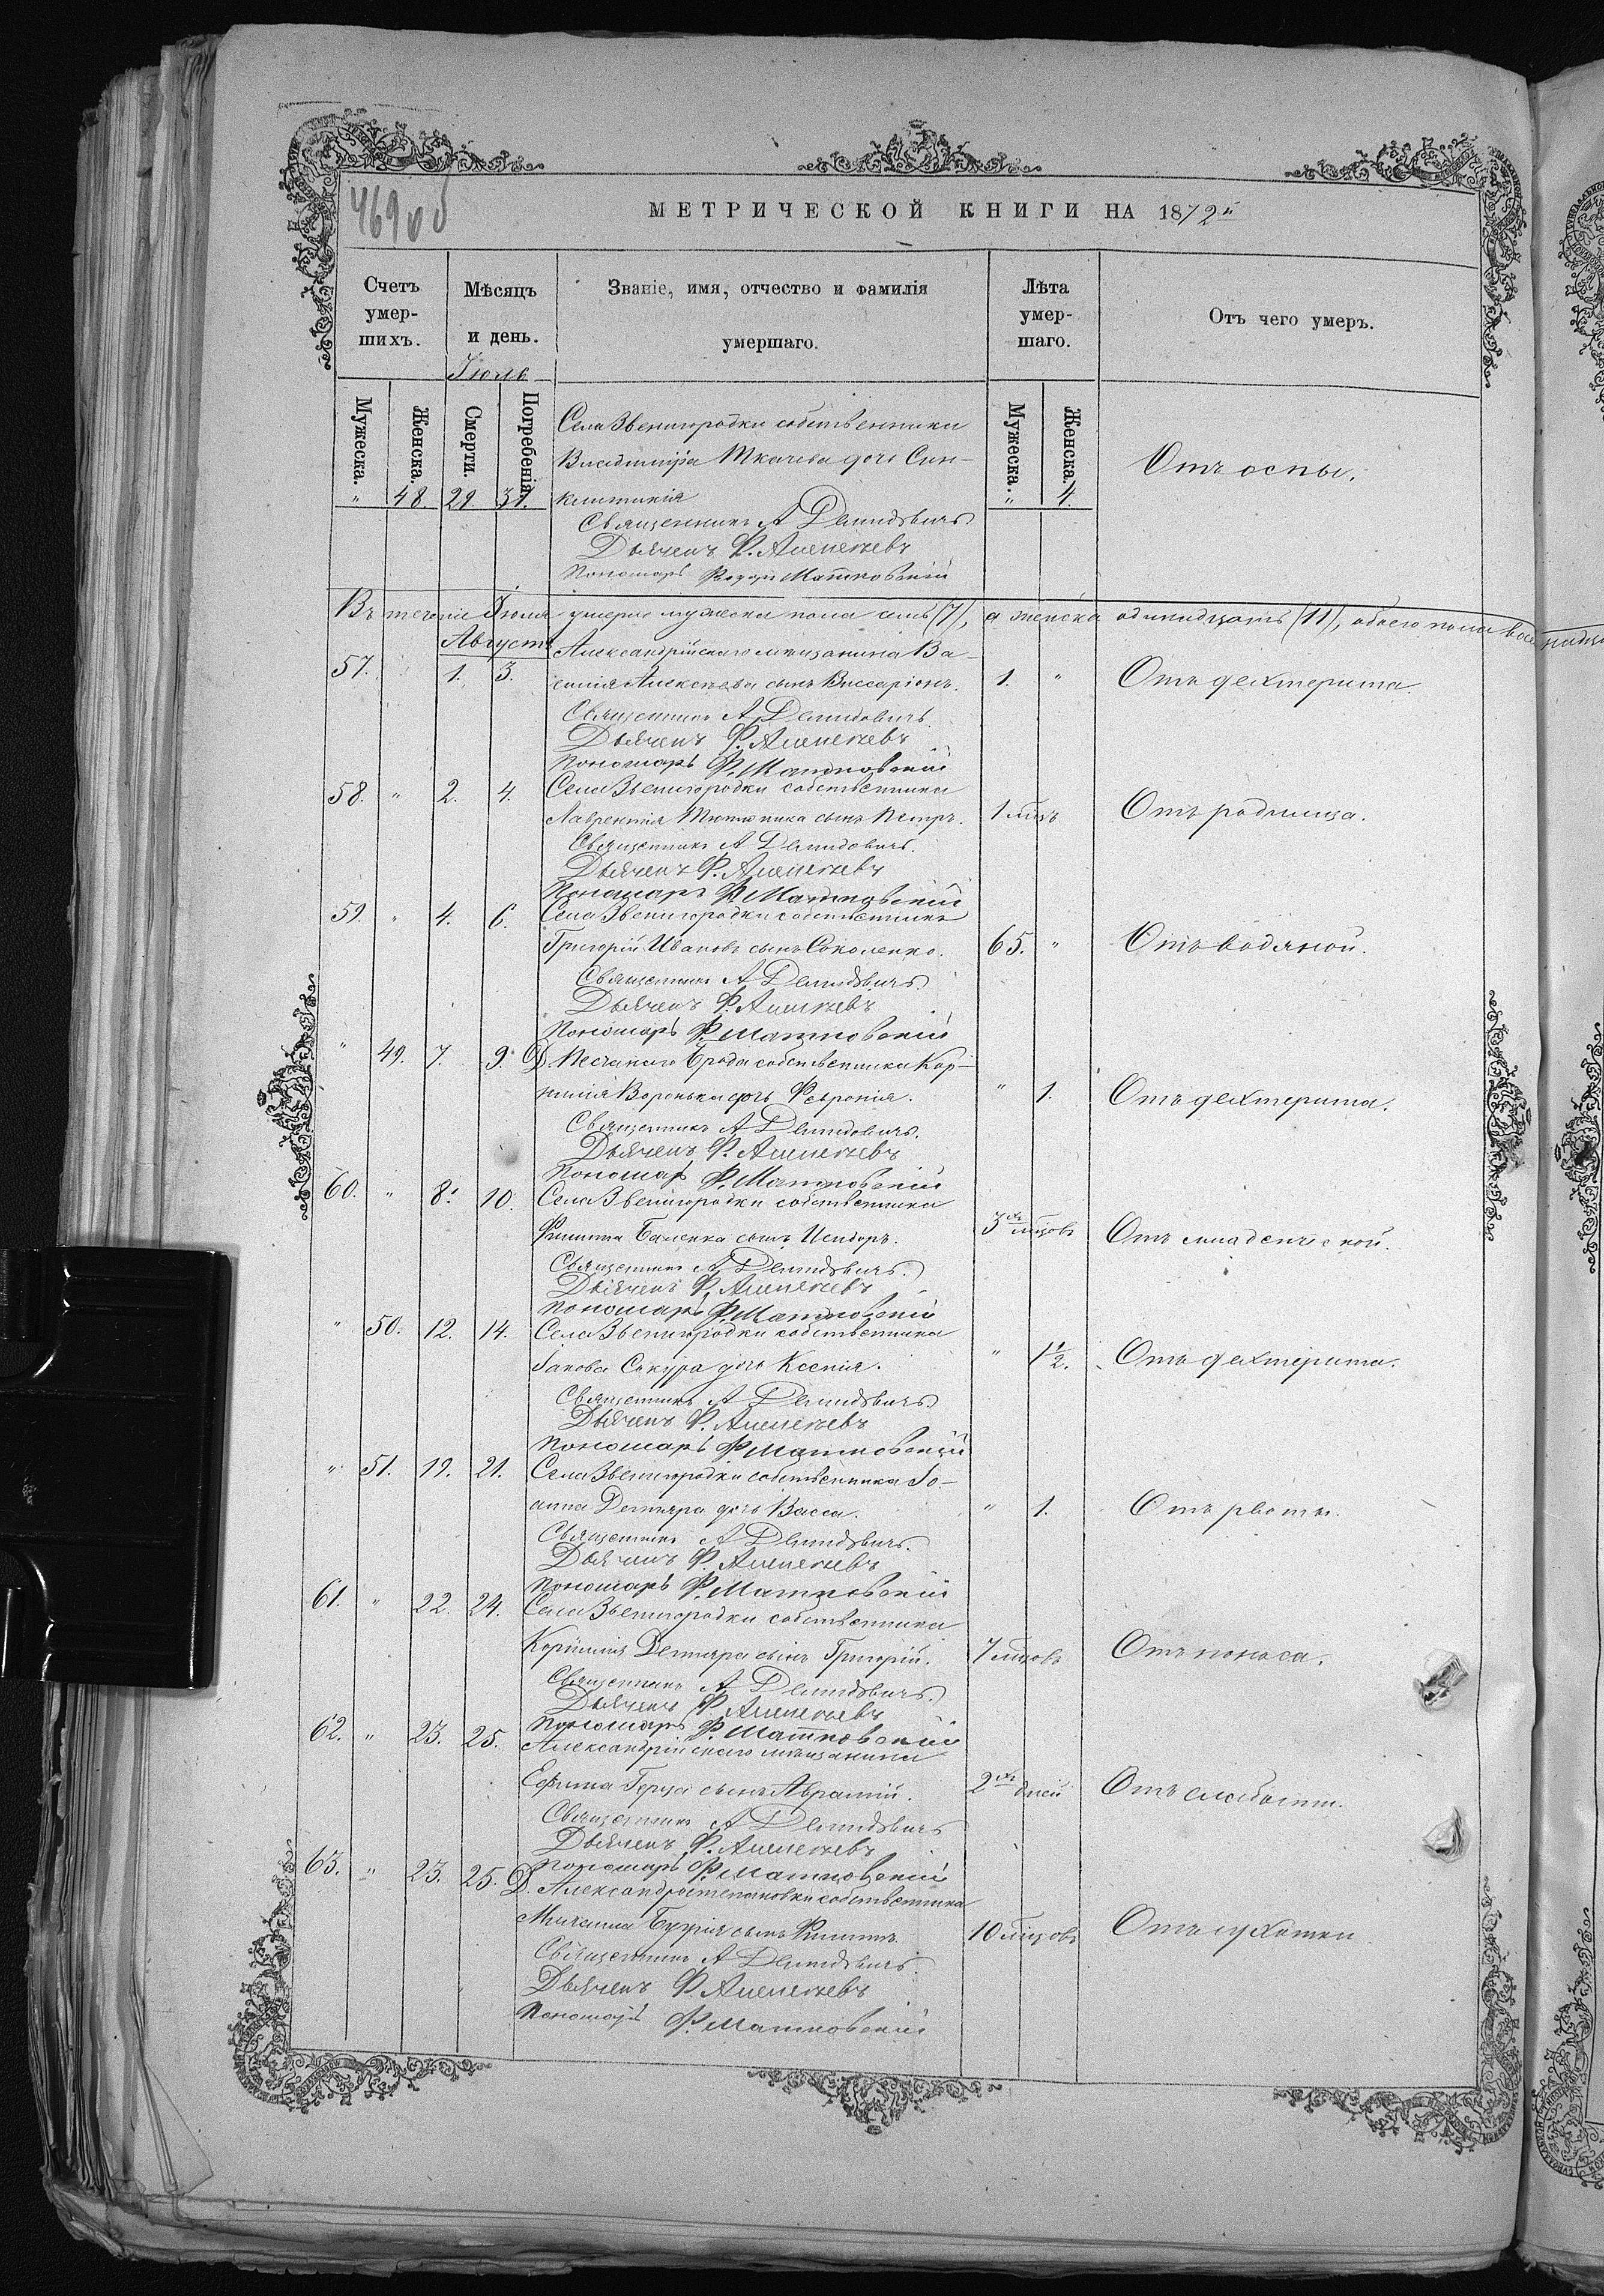 469 об
МЕТРИЧЕСКОЙ КНИГИ НА 1872й
Счетъ умер-шихъ.
Мѣсяцъ и день.
Званіе, имя, отчество и фамилія умершаго.
Лѣта умер-шаго.
Отъ чего умеръ.
Іюль
Мужеска. Женска. Смерти. Погребенія. Мужеска. Женска.
Села Звенигородки собственника
Владиміра Ткачева дочь Син-
" 48. 29. 31. клитикія " 4. Отъ оспы.
Священникъ А Демидовичъ
Дьячекъ Ф. Алексѣевъ
Пономарь Ѳедоръ Матковскій
Въ теченіе Іюля умерло мужеска пола семь (7), а женска одинадцать (11), обоего пола
Августъ
Александрійскаго мѣщанина Ва-
57. 1. 3. силія Алексѣева сынъ Виссаріонъ. 1. " Отъ дехтерита.
Священникъ А Демидовичъ.
Дьячекъ Ф. Алексѣевъ
Пономарь Ф. Матковскій
58. " 2. 4. Села Звенигородки собственника
Лаврентія сынъ Петръ. 1 мѣцъ Отъ родимца.
Священникъ А Демидовичъ.
Дьячекъ Ф. Алексѣевъ
Пономарь Ф. Матковскій
59. " 4. 6. Села Звенигородки собственникъ
Григорій Ивановъ сынъ Соколенко. 65. " Отъ водяной.
Священникъ А Демидовичъ.
Дьячекъ Ф. Алексѣевъ
Пономарь Ф. Матковскій
" 49. 7. 9. Д. Песчанаго Брода собственника Кор-
нилія Вороньки дочь Февронія. " 1. Отъ дехтерита.
Священникъ А Демидовичъ.
Дьячекъ Ф. Алексѣевъ
Пономарь Ф. Матковскій
60. " 8. 10. Села Звенигородки собственника
Филиппа Баленка сынъ Исидоръ. 3хъ мѣцовъ Отъ младенческой.
Священникъ А Демидовичъ.
Дьячекъ Ф. Алексѣевъ
Пономарь Ф. Матковскій
" 50. 12. 14. Села Звенигородки собственника
Іакова Сокура дочь Ксенія. " 1½. Отъ дехтерита.
Священникъ А Демидовичъ
Дьячекъ Ф. Алексѣевъ
Пономарь Ф. Матковскій
" 51. 19. 21. Села Звенигородки собственника Іо-
анна Дегтяра дочь Васса. " 1. Отъ рвоты.
Священникъ А Демидовичъ.
Дьячекъ Ф. Алексѣевъ
Пономарь Ф. Матковскій
61. " 22. 24. Села Звенигородки собственника
Корнилія Дегтяра сынъ Григорій. 7 мѣцовъ Отъ поноса.
Священникъ А Демидовичъ.
Дьячекъ Ф. Алексѣевъ
Пономарь Ф. Матковскій
62. " 23. 25. Александрійскаго мѣщанина
Ефима сынъ Аврамій. 2хъ дней Отъ слабости.
Священникъ А Демидовичъ
Дьячекъ Ф. Алексѣевъ
Пономарь Ф. Матковскій
63. " 23. 25. Д. Александростепановки собственника
Михаила сынъ Филиппъ. 10 мѣцовъ Отъ сухотки
Священникъ А Демидовичъ.
Дьячекъ Ф. Алексѣевъ
Пономарь Ф. Матковскій